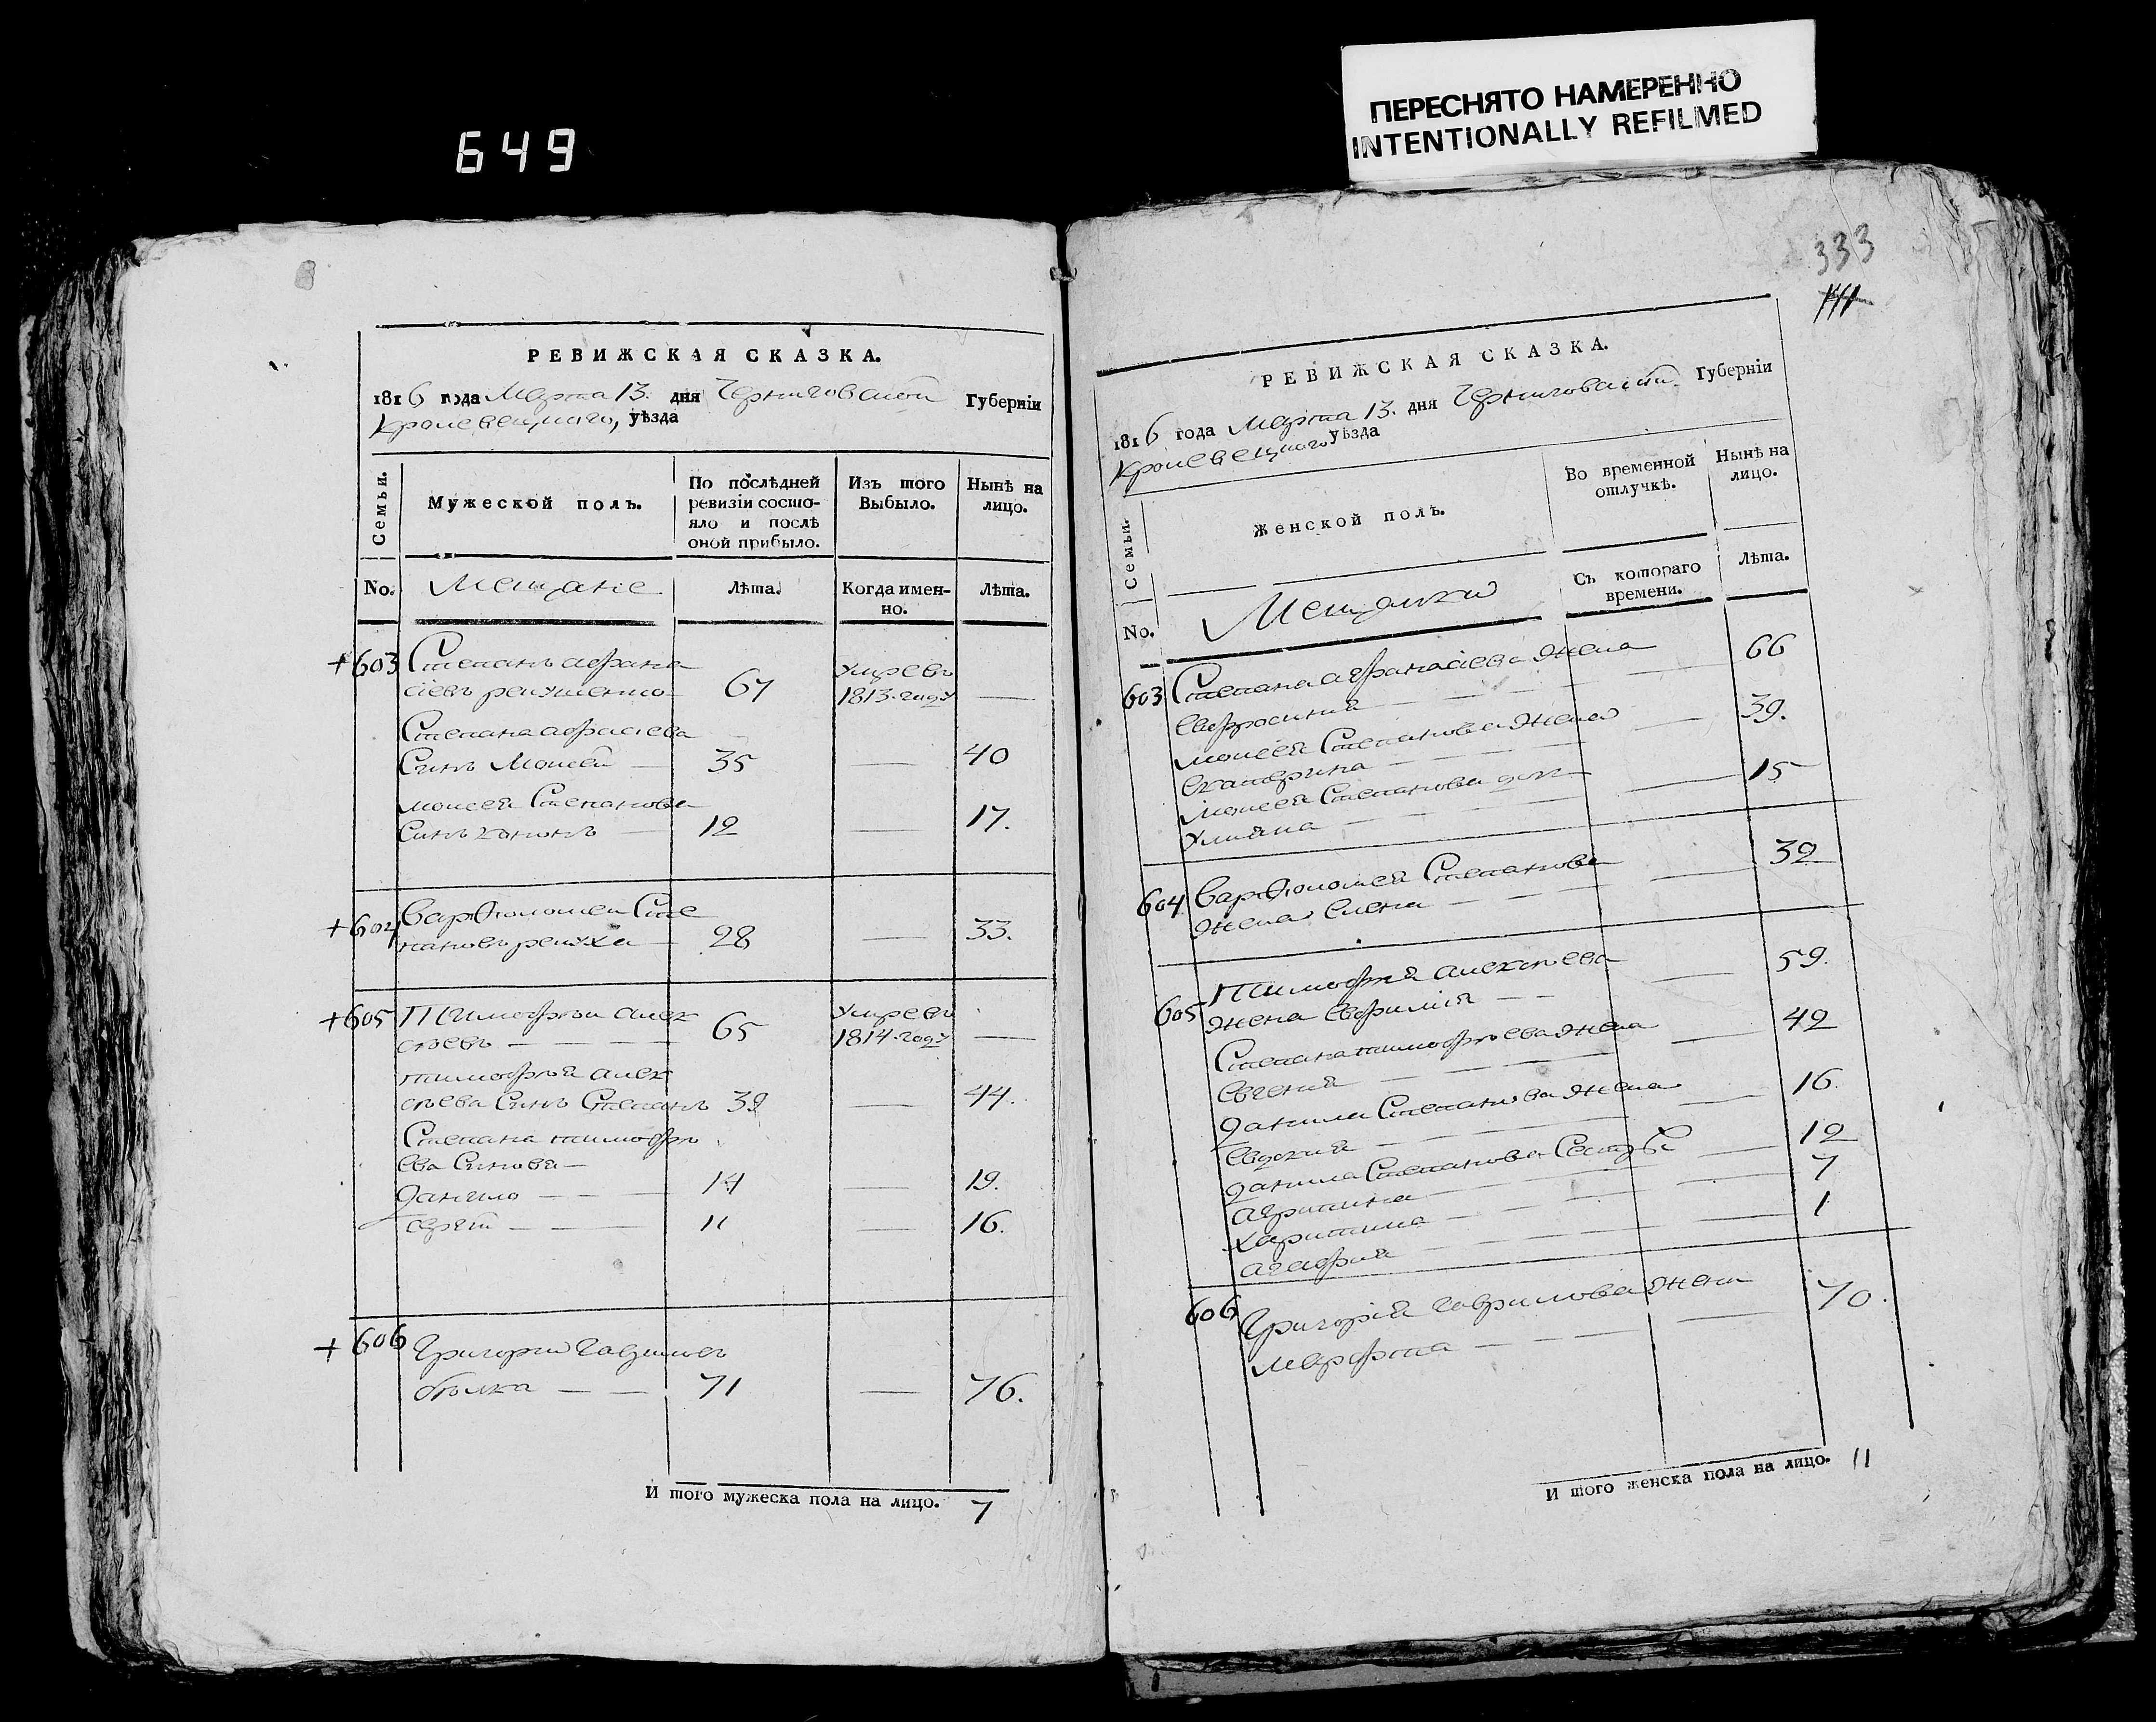 649
ПЕРЕСНЯТО НАМЕРЕННО
INTENTIONALLY REFILMED
РЕВИЖСКАЯ СКАЗКА.
1816 года Марта 13. дня Черниговской Губерніи
Кролевецкаго, уѣзда
Семьи.
Мужеской полъ.
По послѣдней ревизіи состояло и послѣ оной прибыло.
Изъ того Выбыло.
Нынѣ на лицо.
No.
Мещане
Лѣта.
Когда именно.
Лѣта.
+603 Степанъ афана
сіевъ 67 Умре въ 1813. году —
Степана
Синъ Моисей — 35 — 40
Моисея Степанова
Синъ — 12 — 17.
+604 Варфоломей Сте
пановъ — 28 — 33.
+605 Тимофѣй алек
сѣевъ — — — 65 Умре въ 1814. году —
тимофѣя алек
сѣева Синъ Степанъ 39 — 44.
Степана тимофѣ
ева Синовя —
данило — — 14 — 19.
— — 11 — 16.
+606 Григорій Гаврилов
— — 71 — 76.
И того мужеска пола на лицо. 7
333
РЕВИЖСКАЯ СКАЗКА.
1816 года Марта 13. дня Черниговской Губерніи
Кролевецкаго уѣзда
Семьи.
Женской полъ.
Во временной отлучкѣ.
Нынѣ на лицо.
No.
Мещанки
Съ котораго времени.
Лѣта.
603 Степана афанасіева жена
евфросинія — — — 66
моисея Степанова жена
екатерина — — — 39.
Моисея Степанова доч
Улияна — — — 15
604 Варфоломея Степанова
жена елена — — — 32
605 Тимофѣя алексѣева
жена евфимія — — — 59.
Степана тимофѣева жена
евгения — — — 42
данила Степанова жена
евдокия — — — 16.
данила Степанова Сестры
агрипина — — 12
харитина — — 7
агафия — — 1
606 Григорія Гаврилова жена
марфа — — — 70.
И того женска пола на лицо. 11